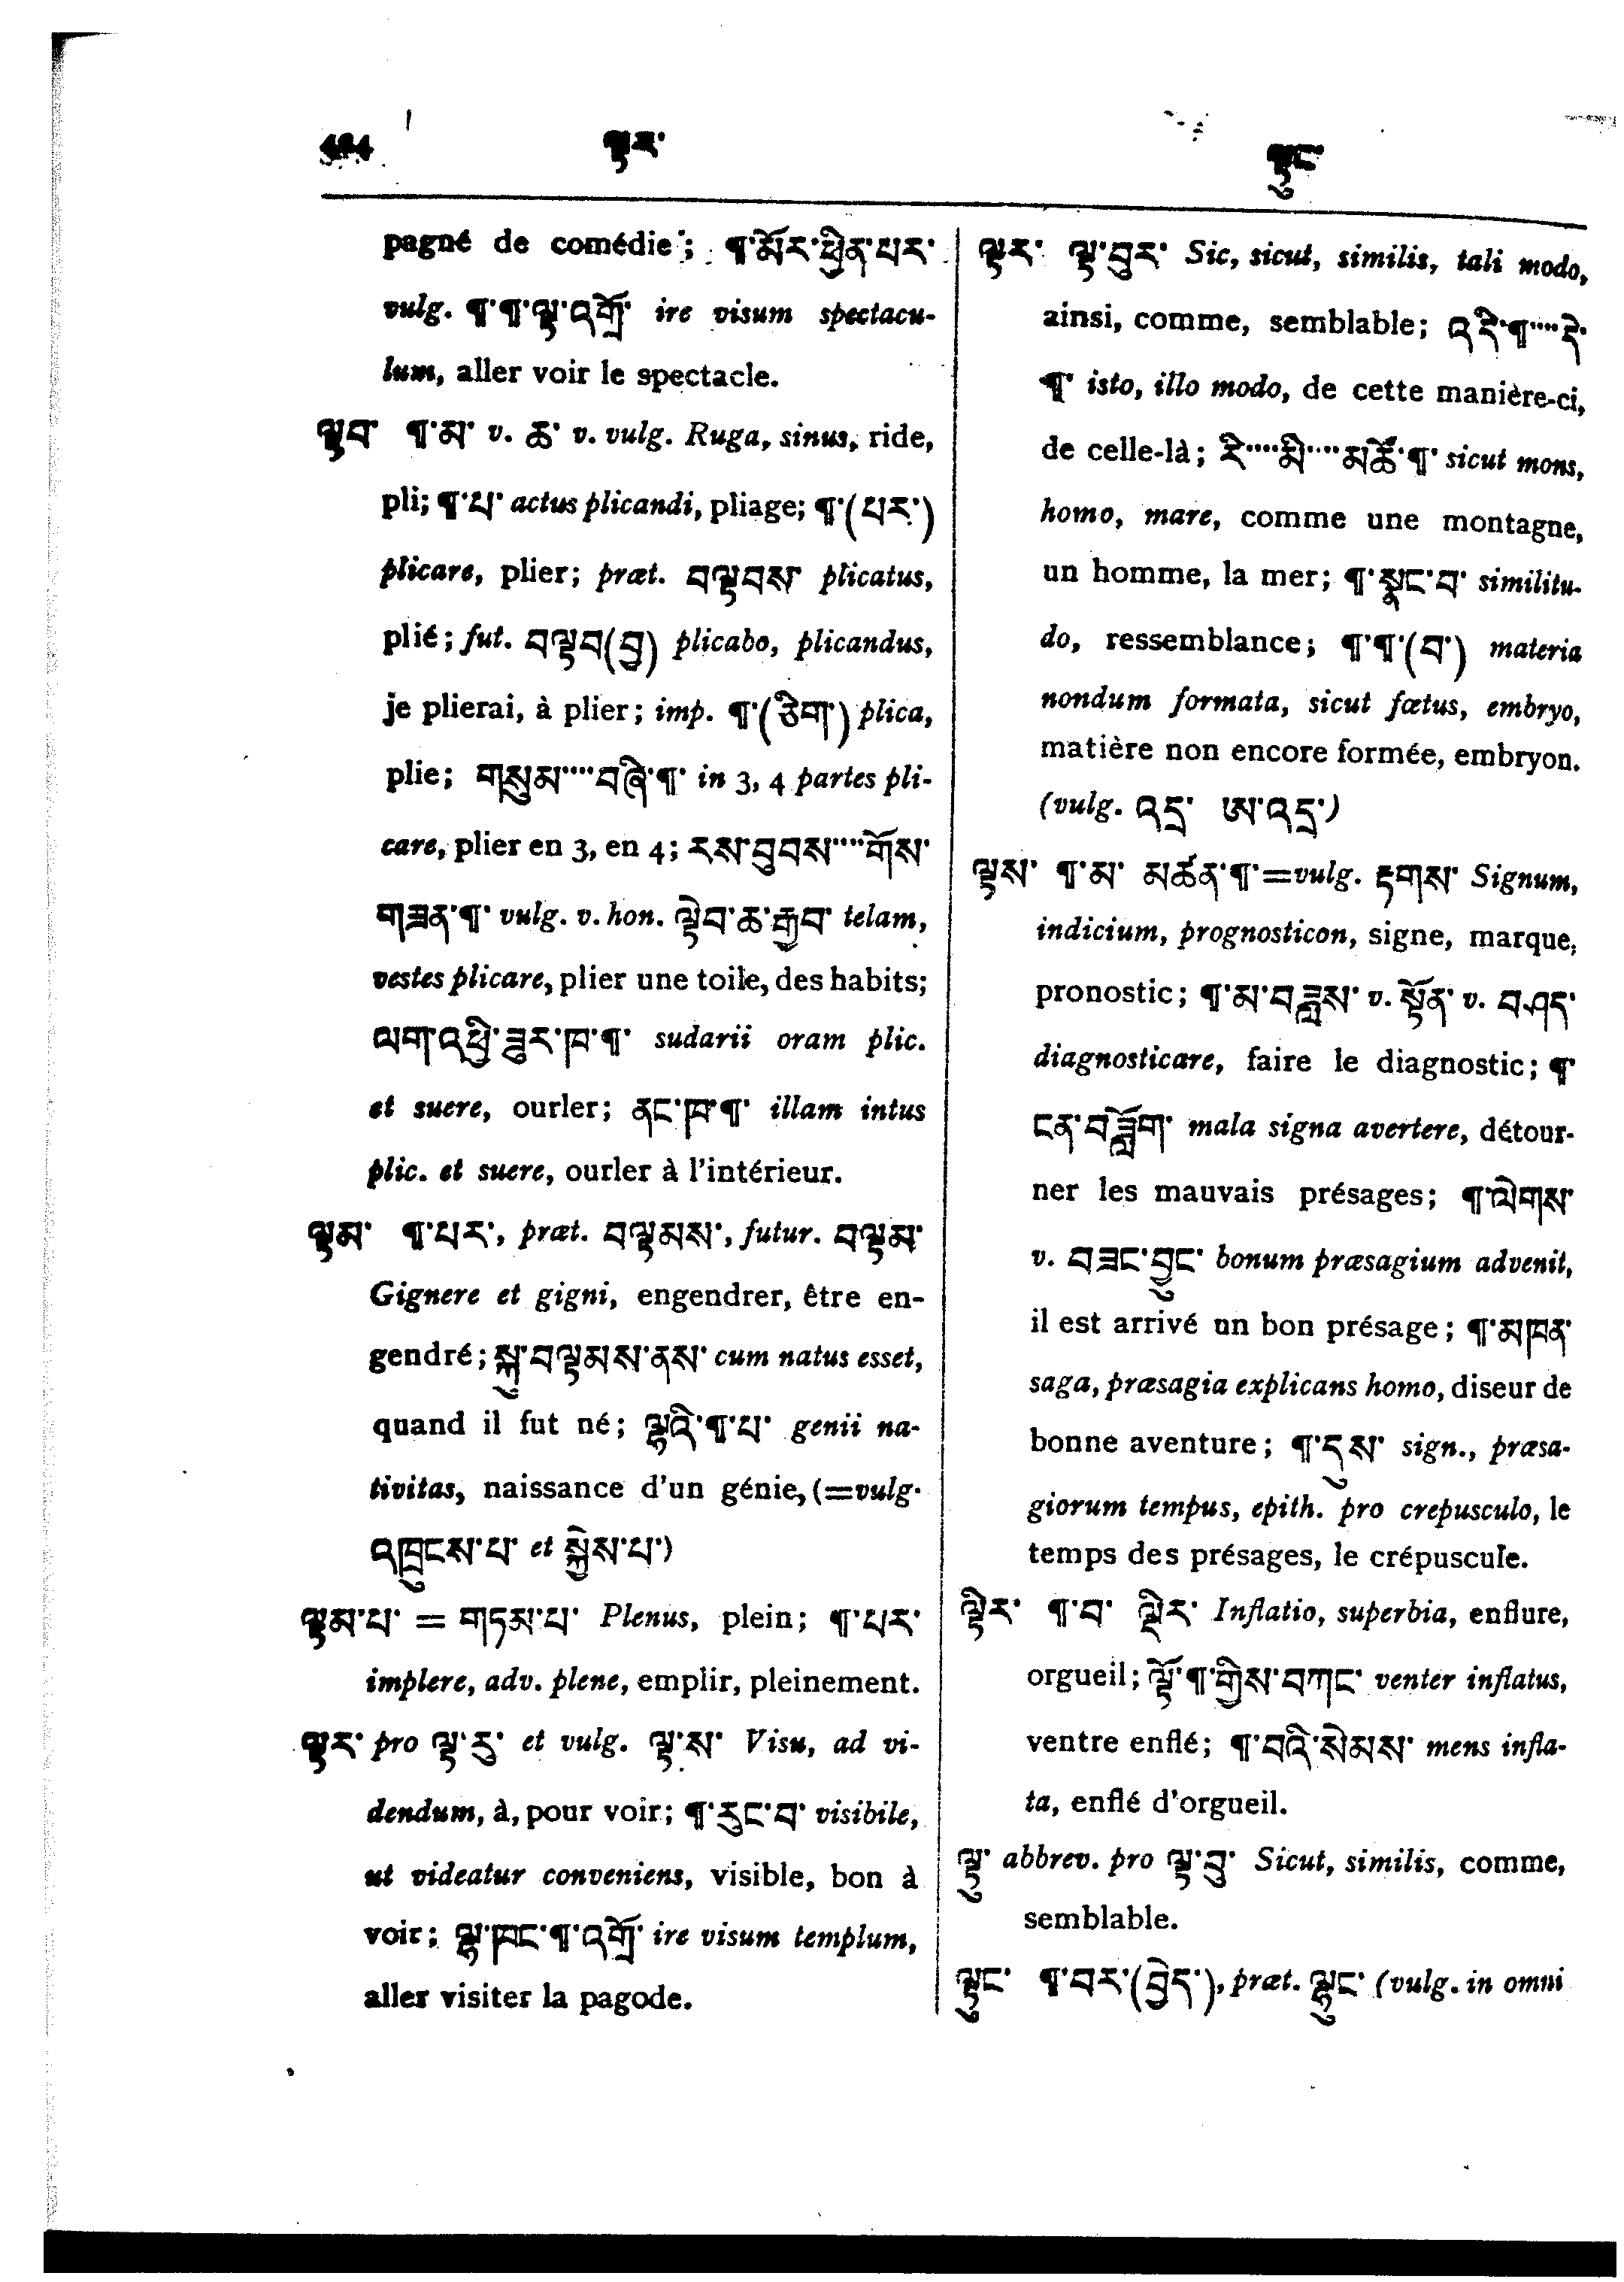 ལྟར་
ལྟུང
pagné de comédie; ¶་མོར་ཕྱིན་པར་
vulg. ¶་¶་ལྟ་འགྲོ་ ire visum spectacu-
lum, aller voir le spectacle.
ལྟབ་ ¶་མ་ v. ཆ་ v. vulg. Ruga, sinus, ride,
pli; ¶་པ་ actus plicandi, pliage; ¶་(པར་)
plicare, plier; præt. བལྟབས་ plicatus,
plié; fut. བལྟབ(བྱ) plicabo, plicandus,
je plierai, à plier; imp. ¶་(ཅིག་) plica,
plie; གསུམ་་་་བཞི་¶་ in 3, 4 partes pli-
care, plier en 3, en 4; རས་བུབས་་་་གོས་
གཟན་¶་ vulg. v. hon. ལྟེབ་ཆ་རྒྱབ་ telam,
vestes plicare, plier une toile, des habits;
ལག་འཕྱི་ཟུར་ཁ་¶་ sudarii oram plic.
et suere, ourler; ནང་ཁ་¶་ illam intus
plic. et suere, ourler à l'intérieur.
ལྟམ་ ¶་པར་, præt. བལྟམས་, futur. བལྟམ་
Gignere et gigni, engendrer, être en-
gendré; སྐུ་བལྟམས་ནས་ cum natus esset,
quand il fut né; ལྷའི་¶་པ་ genii na-
tivitas, naissance d'un génie, (=vulg.
འཁྲུངས་པ་ et སྐྱེས་པ་)
ལྟམ་པ་ = གཏམ་པ་ Plenus, plein; ¶་པར་
implere, adv. plene, emplir, pleinement.
ལྟར་ pro ལྟ་རུ་ et vulg. ལྟ་ས་ Visu, ad vi-
dendum, à, pour voir; ¶་རུང་བ་ visibile,
ut videatur conveniens, visible, bon à
voir; ལྷ་ཁང་¶་འགྲོ་ ire visum templum,
aller visiter la pagode.
ལྟར་ ལྟ་བུར་ Sic, sicut, similis, tali modo,
ainsi, comme, semblable; འདི་¶་་་་དེ་
¶་ isto, illo modo, de cette manière-ci,
de celle-là; རི་་་་མི་་་་མཚོ་¶་ sicut mons,
homo, mare, comme une montagne,
un homme, la mer; ¶་སྣང་བ་ similitu-
do, ressemblance; ¶་¶་(བ་) materia
nondum formata, sicut fœtus, embryo,
matière non encore formée, embryon.
(vulg. འདྲ་ ཨ་འདྲ་)
ལྟས་ ¶་མ་ མཚན་¶་=vulg. རྟགས་ Signum,
indicium, prognosticon, signe, marque,
pronostic; ¶་མ་བཟླས་ v. སྟོན་ v. བཤད་
diagnosticare, faire le diagnostic; ¶་
ངན་བཟློག་ mala signa avertere, détour-
ner les mauvais présages; ¶་ལེགས་
v. བཟང་བྱུང་ bonum præsagium advenit,
il est arrivé un bon présage; ¶་མཁན་
saga, præsagia explicans homo, diseur de
bonne aventure; ¶་དུས་ sign., præsa-
giorum tempus, epith. pro crepusculo, le
temps des présages, le crépuscule.
ལྟིར་ ¶་བ་ ལྡིར་ Inflatio, superbia, enflure,
orgueil; ལྟོ་¶་གྱིས་བཀང་ venter inflatus,
ventre enflé; ¶་བའི་སེམས་ mens infla-
ta, enflé d'orgueil.
ལྟུ་ abbrev. pro ལྟ་བུ་ Sicut, similis, comme,
semblable.
ལྟུང་ ¶་བར་(བྱེད་), præt. ལྷུང་ (vulg. in omni